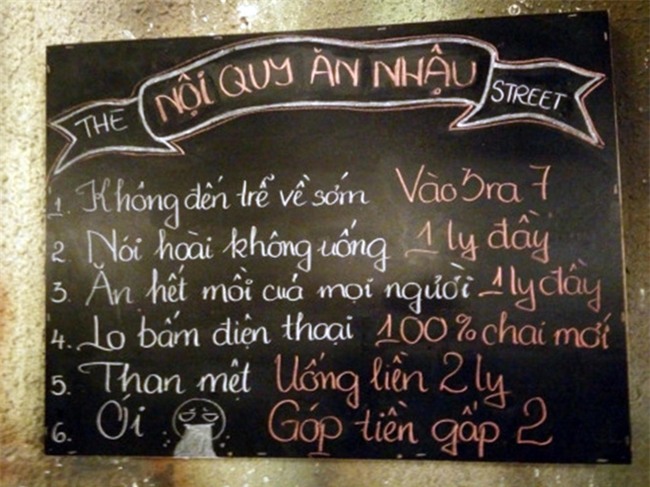 NỘI QUY ĂN NHẬU
THE STREET
1. Không đến trể về sớm Vào 3 ra 7
2. Nói hoài không uống 1 ly đầy
3. Ăn hết mồi cuả mọi người 1 ly đầy
4. Lo bấm điện thoại 100% chai mới
5. Than mệt Uống liền 2 ly
6. Ói Góp tiền gấp 2